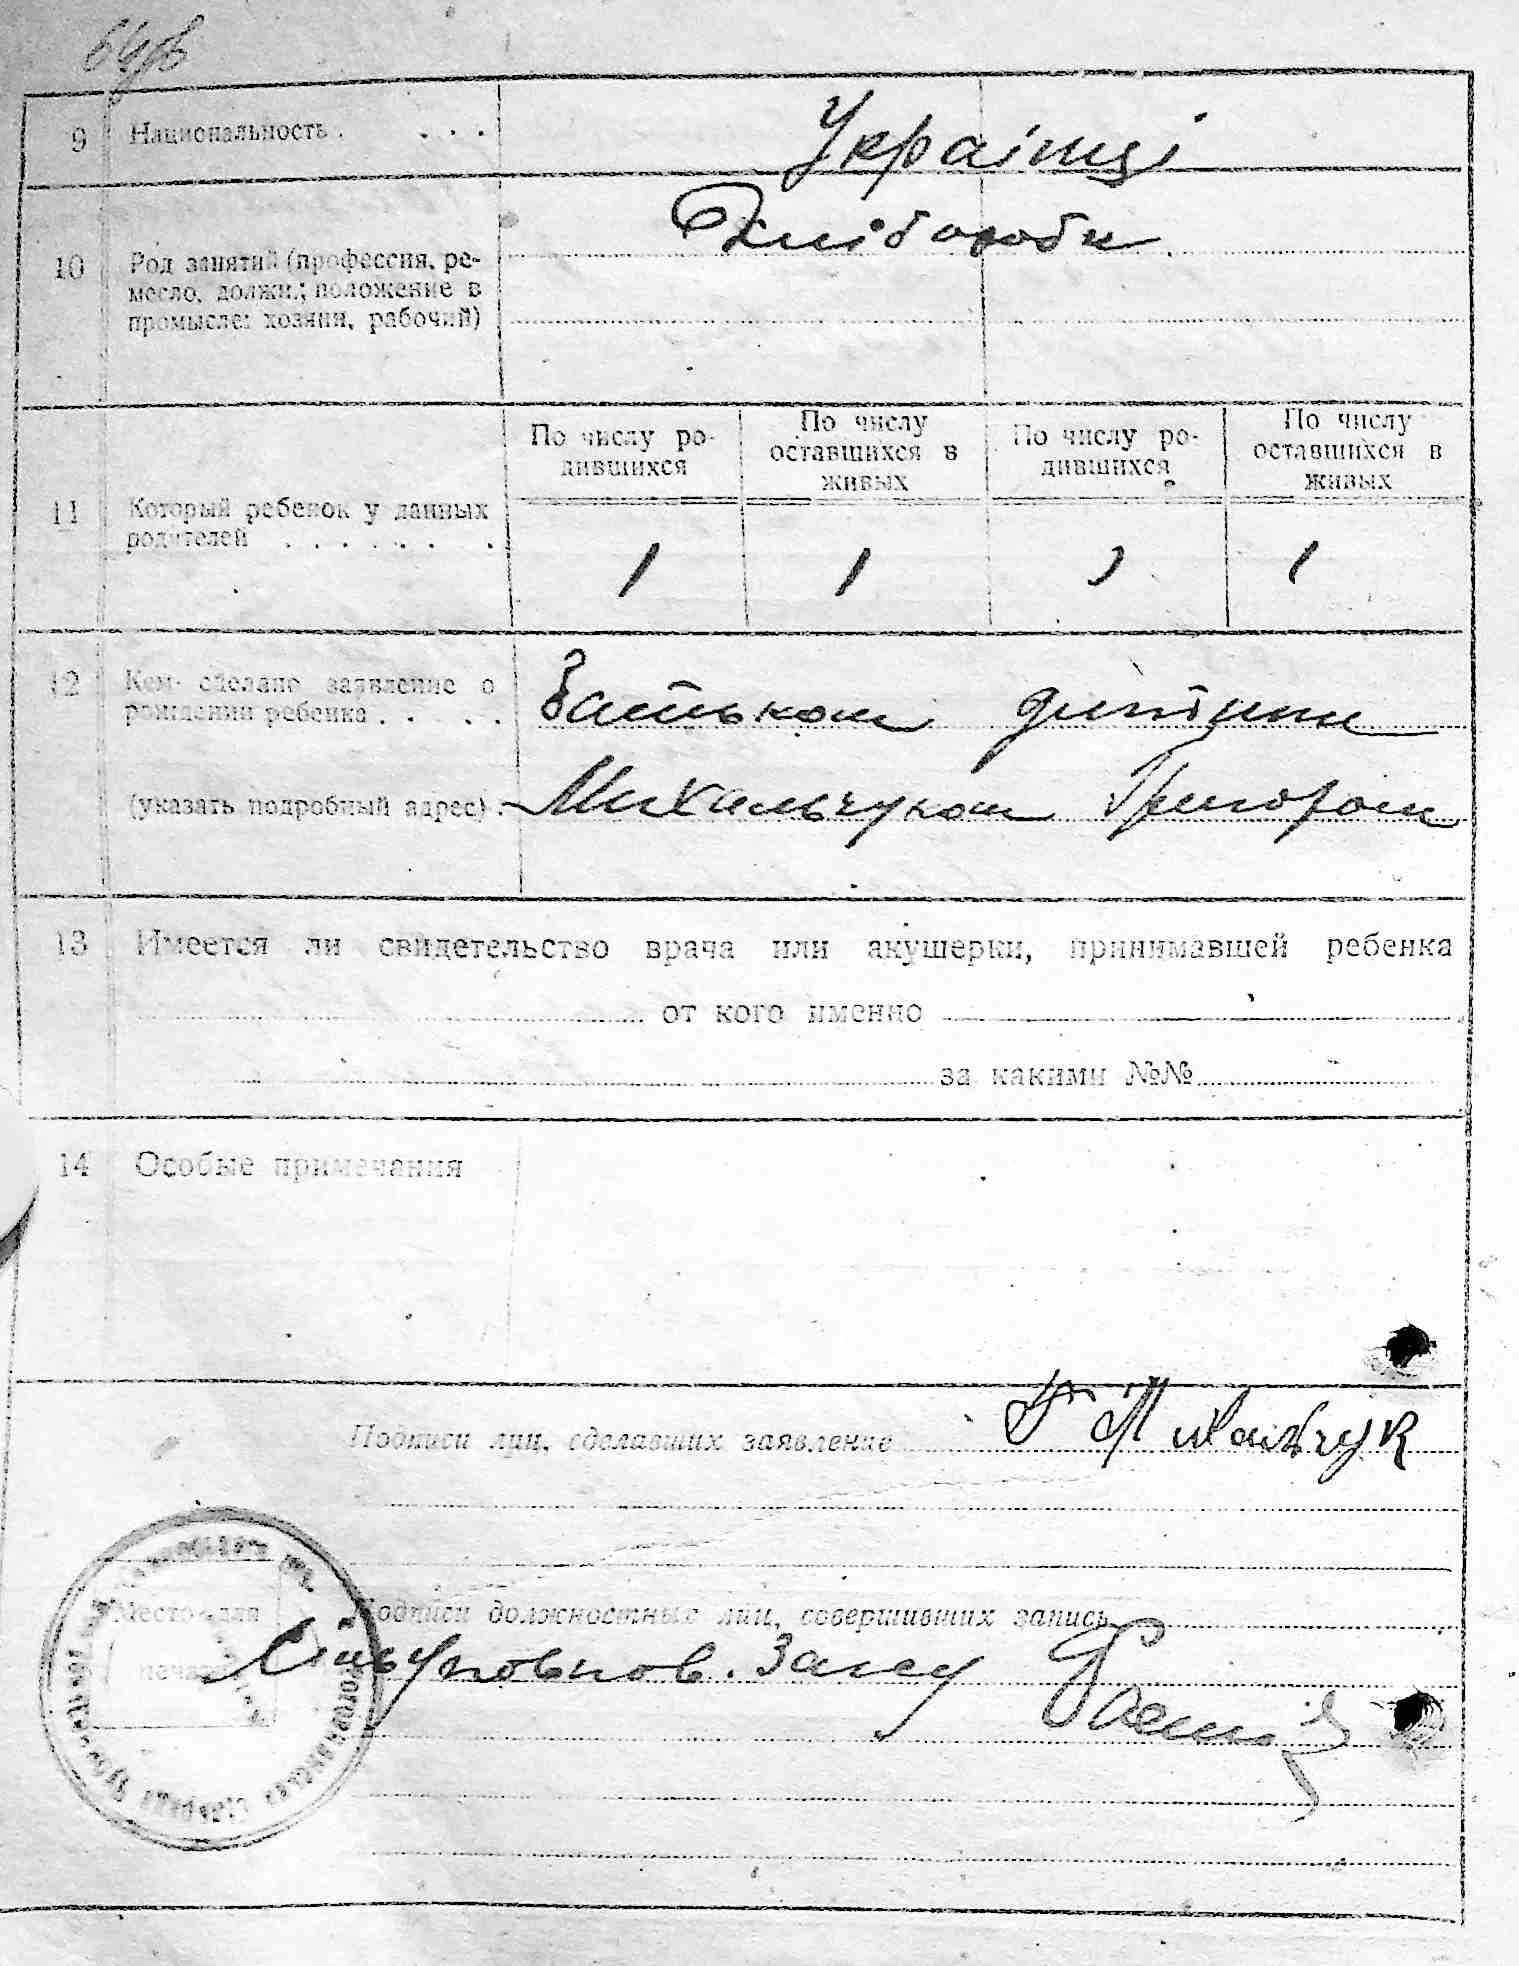 9 Национальность . . . .
Українці
Хлібороби
10 Род занятий (профессия, ре-
месло, должн.; положение в
промысле: хозяин, рабочий)
По числу ро-
дившихся
По числу
оставшихся в
живых
По числу ро-
дившихся
По числу
оставшихся в
живых
11 Который ребенок у данных
родителей . . . . . .
1 1 1 1
12 Кем сделано заявление о
рождении ребенка . . . .
Батьком дитини
(указать подробный адрес) .
Михальчуком Григором
13 Имеется ли свидетельство врача или акушерки, принимавшей ребенка
от кого именно
за какими №№
14 Особые примечания
Подписи лиц, сделавших заявление
Г Михальчук
Место для
печати
Подписи должностных лиц, совершивших запись
Сільуповнов. Загсу